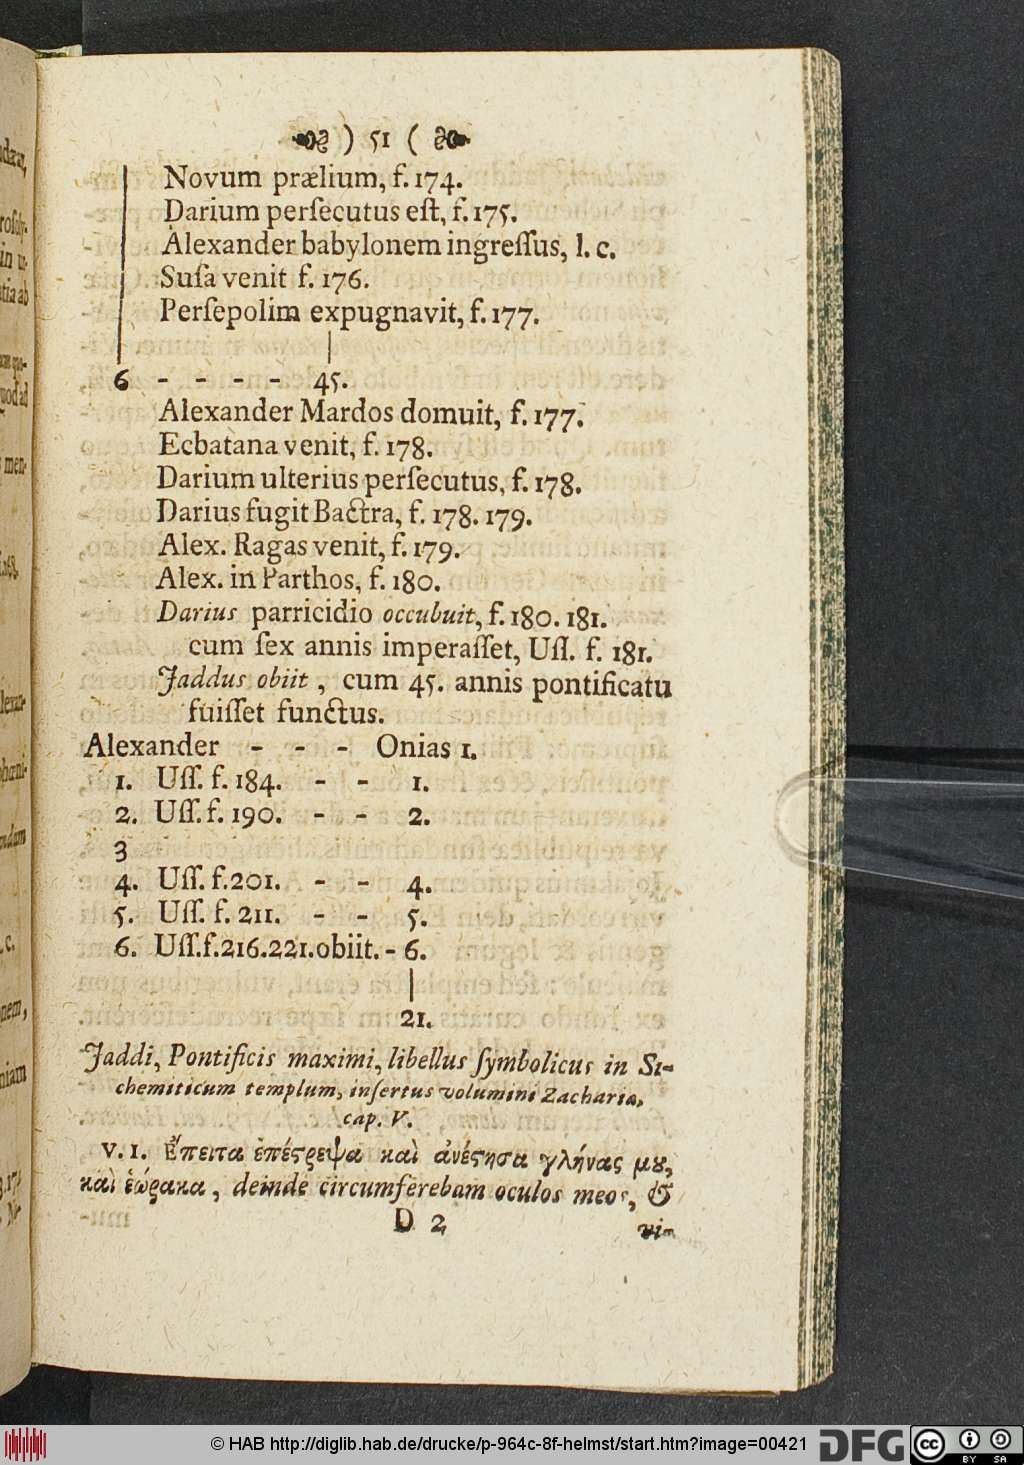 ) 51 (
Novum prælium, f. 174.
Darium perſecutus eſt, f. 175.
Alexander babylonem ingreſſus, l. c.
Suſa venit f. 176.
Perſepolim expugnavit, f. 177.
6 - - - - 45.
Alexander Mardos domuit, f. 177.
Ecbatana venit, f. 178.
Darium ulterius perſecutus, f. 178.
Darius fugit Bactra, f. 178. 179.
Alex. Ragas venit, f. 179.
Alex. in Parthos, f. 180.
Darius parricidio occubuit, f. 180. 181.
cum ſex annis imperaſſet, Uſſ. f. 181.
Jaddus obiit, cum 45. annis pontificatu
fuiſſet functus.
Alexander - - - Onias 1.
1. Uſſ. f. 184. - - 1.
2. Uſſ. f. 190. - - 2.
3
4. Uſſ. f. 201. - - 4.
5. Uſſ. f. 211. - - 5.
6. Uſſ. f. 216. 221. obiit. - 6.
21.
Jaddi, Pontificis maximi, libellus ſymbolicus in Si-
chemiticum templum, inſertus volumini Zachariæ,
cap. V.
v. 1. Ἔπειτα ἐπέςρεψα καὶ ἀνέςησα γλήνας μȣ,
καὶ ἑώρακα, deinde circumferebam oculos meos, &
D 2
vi-
© HAB http://diglib.hab.de/drucke/p-964c-8f-helmst/start.htm?image=00421
DFG
cc
BY SA